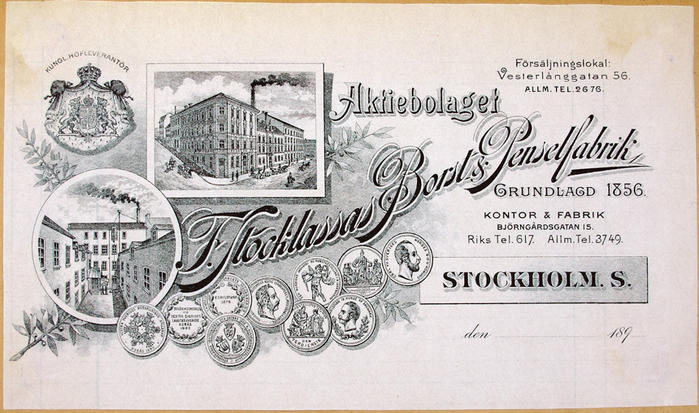 KUNGL. HOFLEVERANTÖR
Försäljningslokal:
Vesterlånggatan 56.
ALLM. TEL. 2676.
Aktiebolaget
F. Stocklassas Borst & Penselfabrik,
GRUNDLAGD 1856.
KONTOR & FABRIK
BJÖRNGÅRDSGATAN 15.
Riks Tel. 617. Allm. Tel. 3749.
STOCKHOLM. S.
den 189